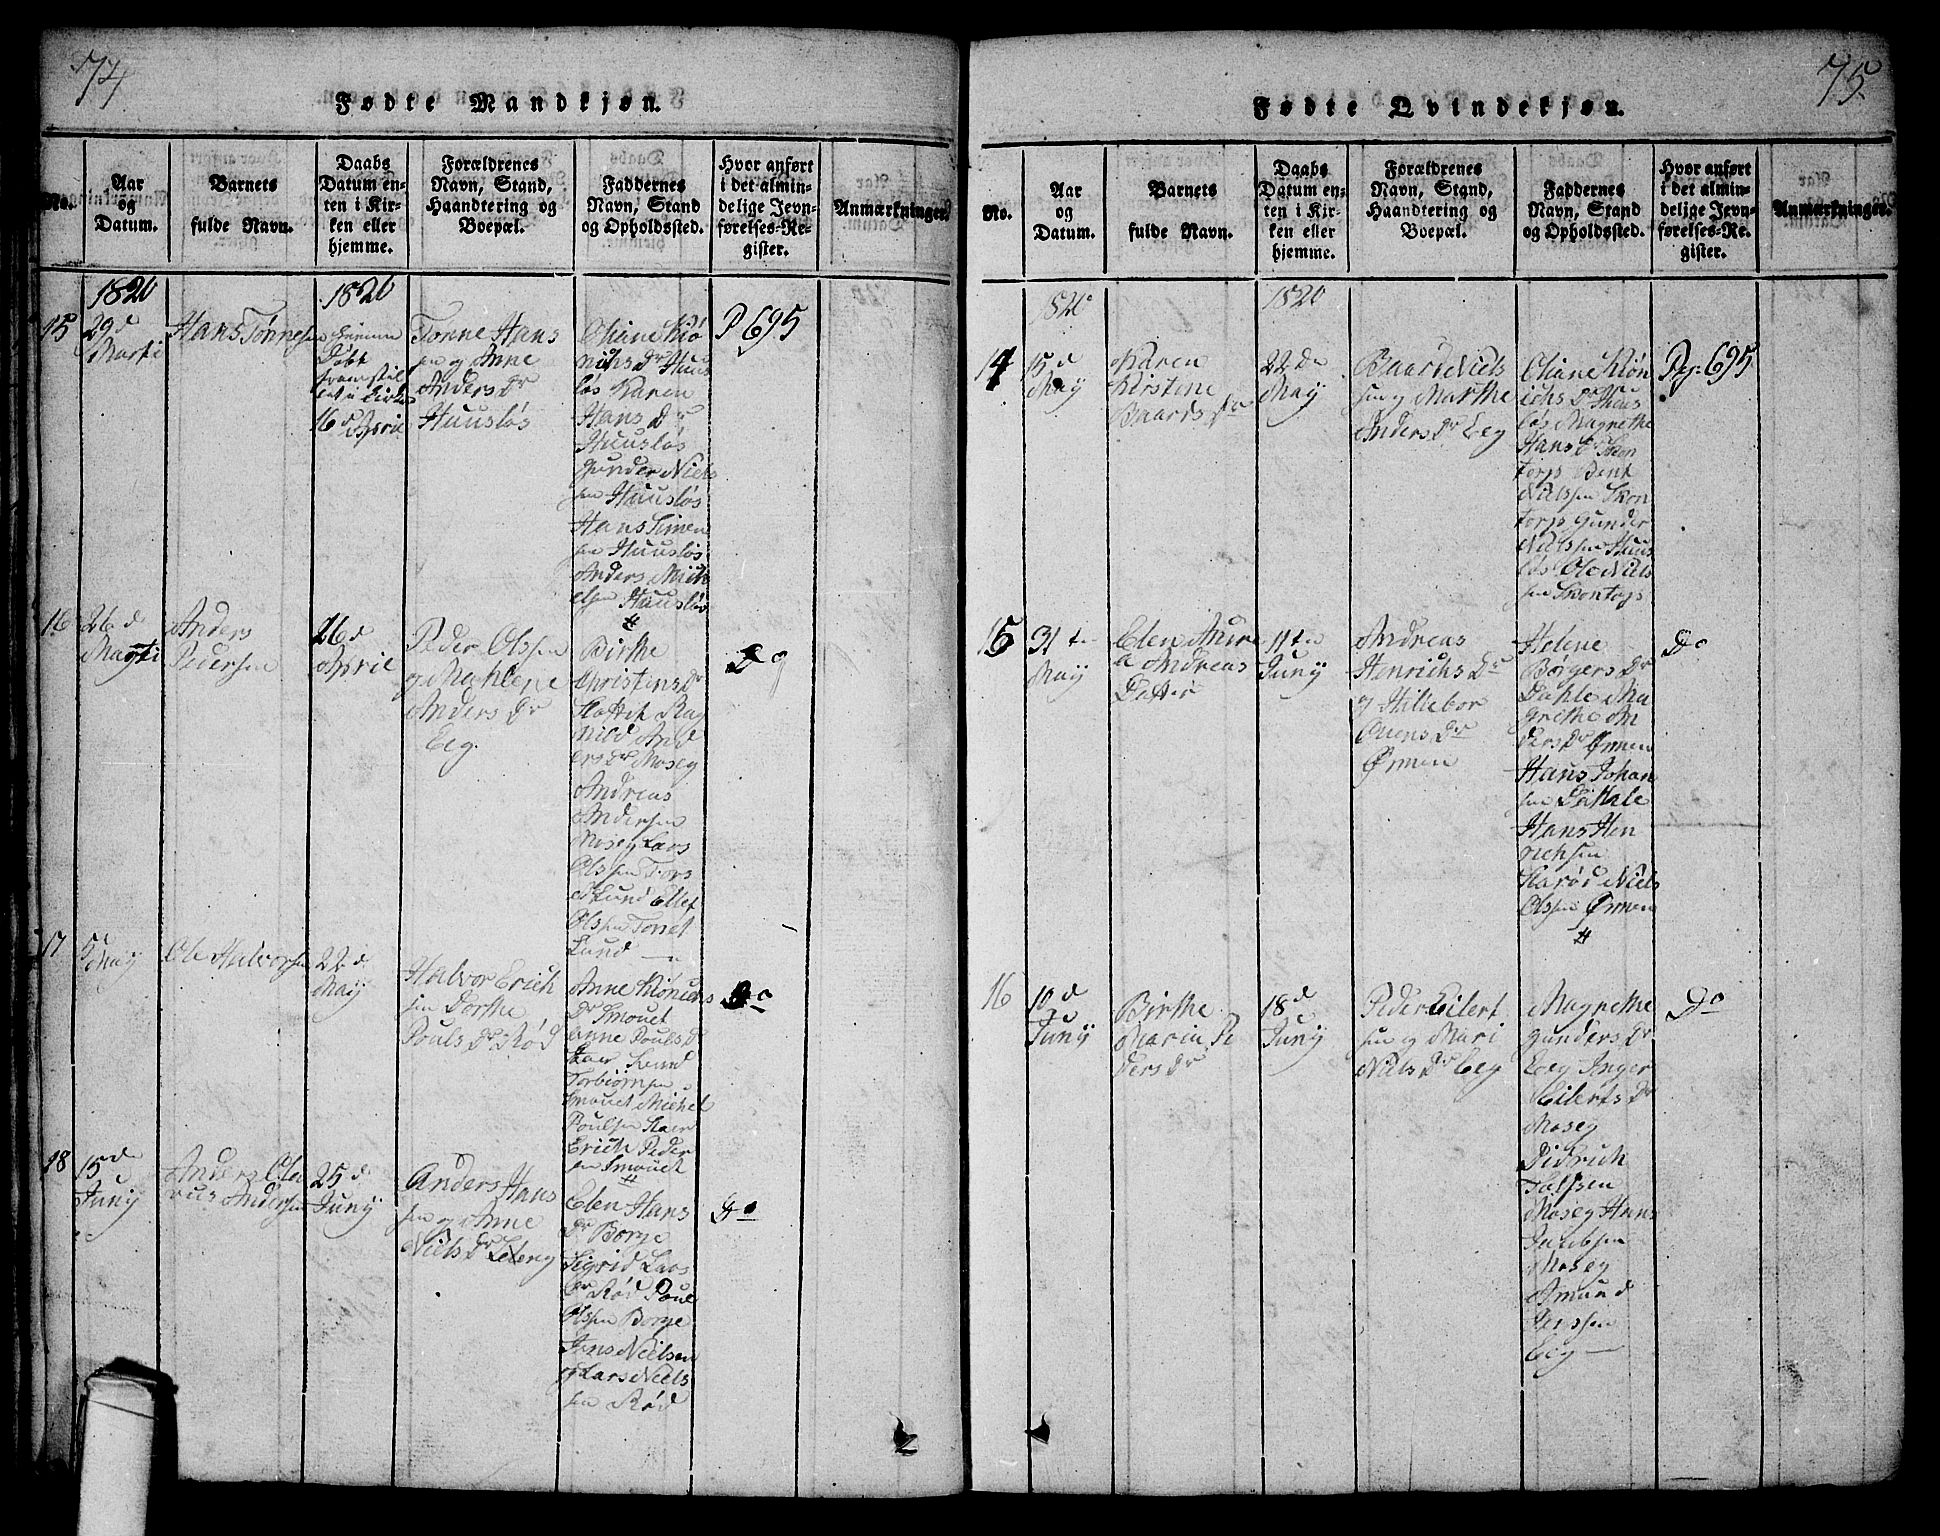 74
Fødte Mandkjøn.
No.
Aar
og
Datum.
Barnets
fulde Navn.
Daabs
Datum en-
ten i Kir-
ken eller
hjemme.
Forældrenes
Navn, Stand,
Haandtering og
Boepæl.
Faddernes
Navn, Stand
og Opholdssted.
Hvor anført
i det almin-
delige Jevn-
førelses-Re-
gister.
Anmærkninger.
1820
1820
15
29d
Marti
Hans Tønnesen
Hiemme
Døbt
fremstil
let i Kirken
16d April
Tønne Hans
sen og Anne
Anders Dr
Huusløs
Oliane Kiø
nichs Dr Huus
løs Karen
Hans Dr
Huusløs
Gunder Niels
sen Huusløs
Hans Simen
sen Huusløs
Anders Mich
elsen Huusløs
P 695
16
26d
Marti
Anders
Pedersen
26d
April
Peder Olssen
og Mahlene
Anders Dr
Eeg
Birthe
Christens Dr
Rag
nild And
ers Dr Moseg
Andreas
Andersen
Moseg Lars
Olssen Tors
Lund Ellef
Olssen
Lund
Do
17
5d
May
Ole Halvorsen
22d
May
Halvor Erich
sen Dorthe
Pouls Dr Rød
Anne Kiønichs
Dr Smouet
Anne Pouls D
Svend
Torbiørnsen
Smouet Michel
Poulsen
Erich Peder
sen Smouet
Do
18
15d
Juny
Anders Ola
rus Andersen
25d
Juny
Anders Hans
sen og Anne
Niels Dr
Elen Hans
Dr Borge
Sigrid Lars
Dr Rød Poul
Olssen Borge
Jens Nielsen
og Lars Niels
sen Rød
Do
75
Fødte Qvindekjøn.
No.
Aar
og
Datum.
Barnets
fulde Navn.
Daabs
Datum en-
ten i Kir-
ken eller
hjemme.
Forældrenes
Navn, Stand,
Haandtering og
Boepæl.
Faddernes
Navn, Stand
og Opholdssted.
Hvor anført
i det almin-
delige Jevn-
førelses-Re-
gister.
Anmærkninger.
1820
1820
14
15d
May
Karen
Kirstine
Baards Dr
22de
May
Baard Niels
sen og Marthe
Anders Dr Eeg
Oliane Kiøn
ichs Dr Huus
løs Magrethe
Hans Dr Skon
torp Bent
Nielssen Skon
torp Gunder
Nielssen Huus
løs Ole Niels
sen Skontorp
Pag: 695
15
31te
May
Elen
Andreas
Datter
11te
Juny
Andreas
Henrichs Dr
og Hillebor
Ouens Dr
Ørmen
Helene
Børgers Dr
Dahle Ma
grethe An
ders Dr Ørmen
Hans Johan
sen Dahle
Hans Hen
richsen
Niels
Olssen Ørmen
Do
16
10d
Juny
Birthe
Maria Pe
ders Dr
18d
Juny
Peder Eilert
sen og Mari
Niels Dr Eeg
Magrethe
Gunders Dr
Eeg Inger
Eilerts Dr
Moseg
Didrich
Moseg Hans
Jacobsen
Moseg
Amund
Jenssen
Eeg
Do